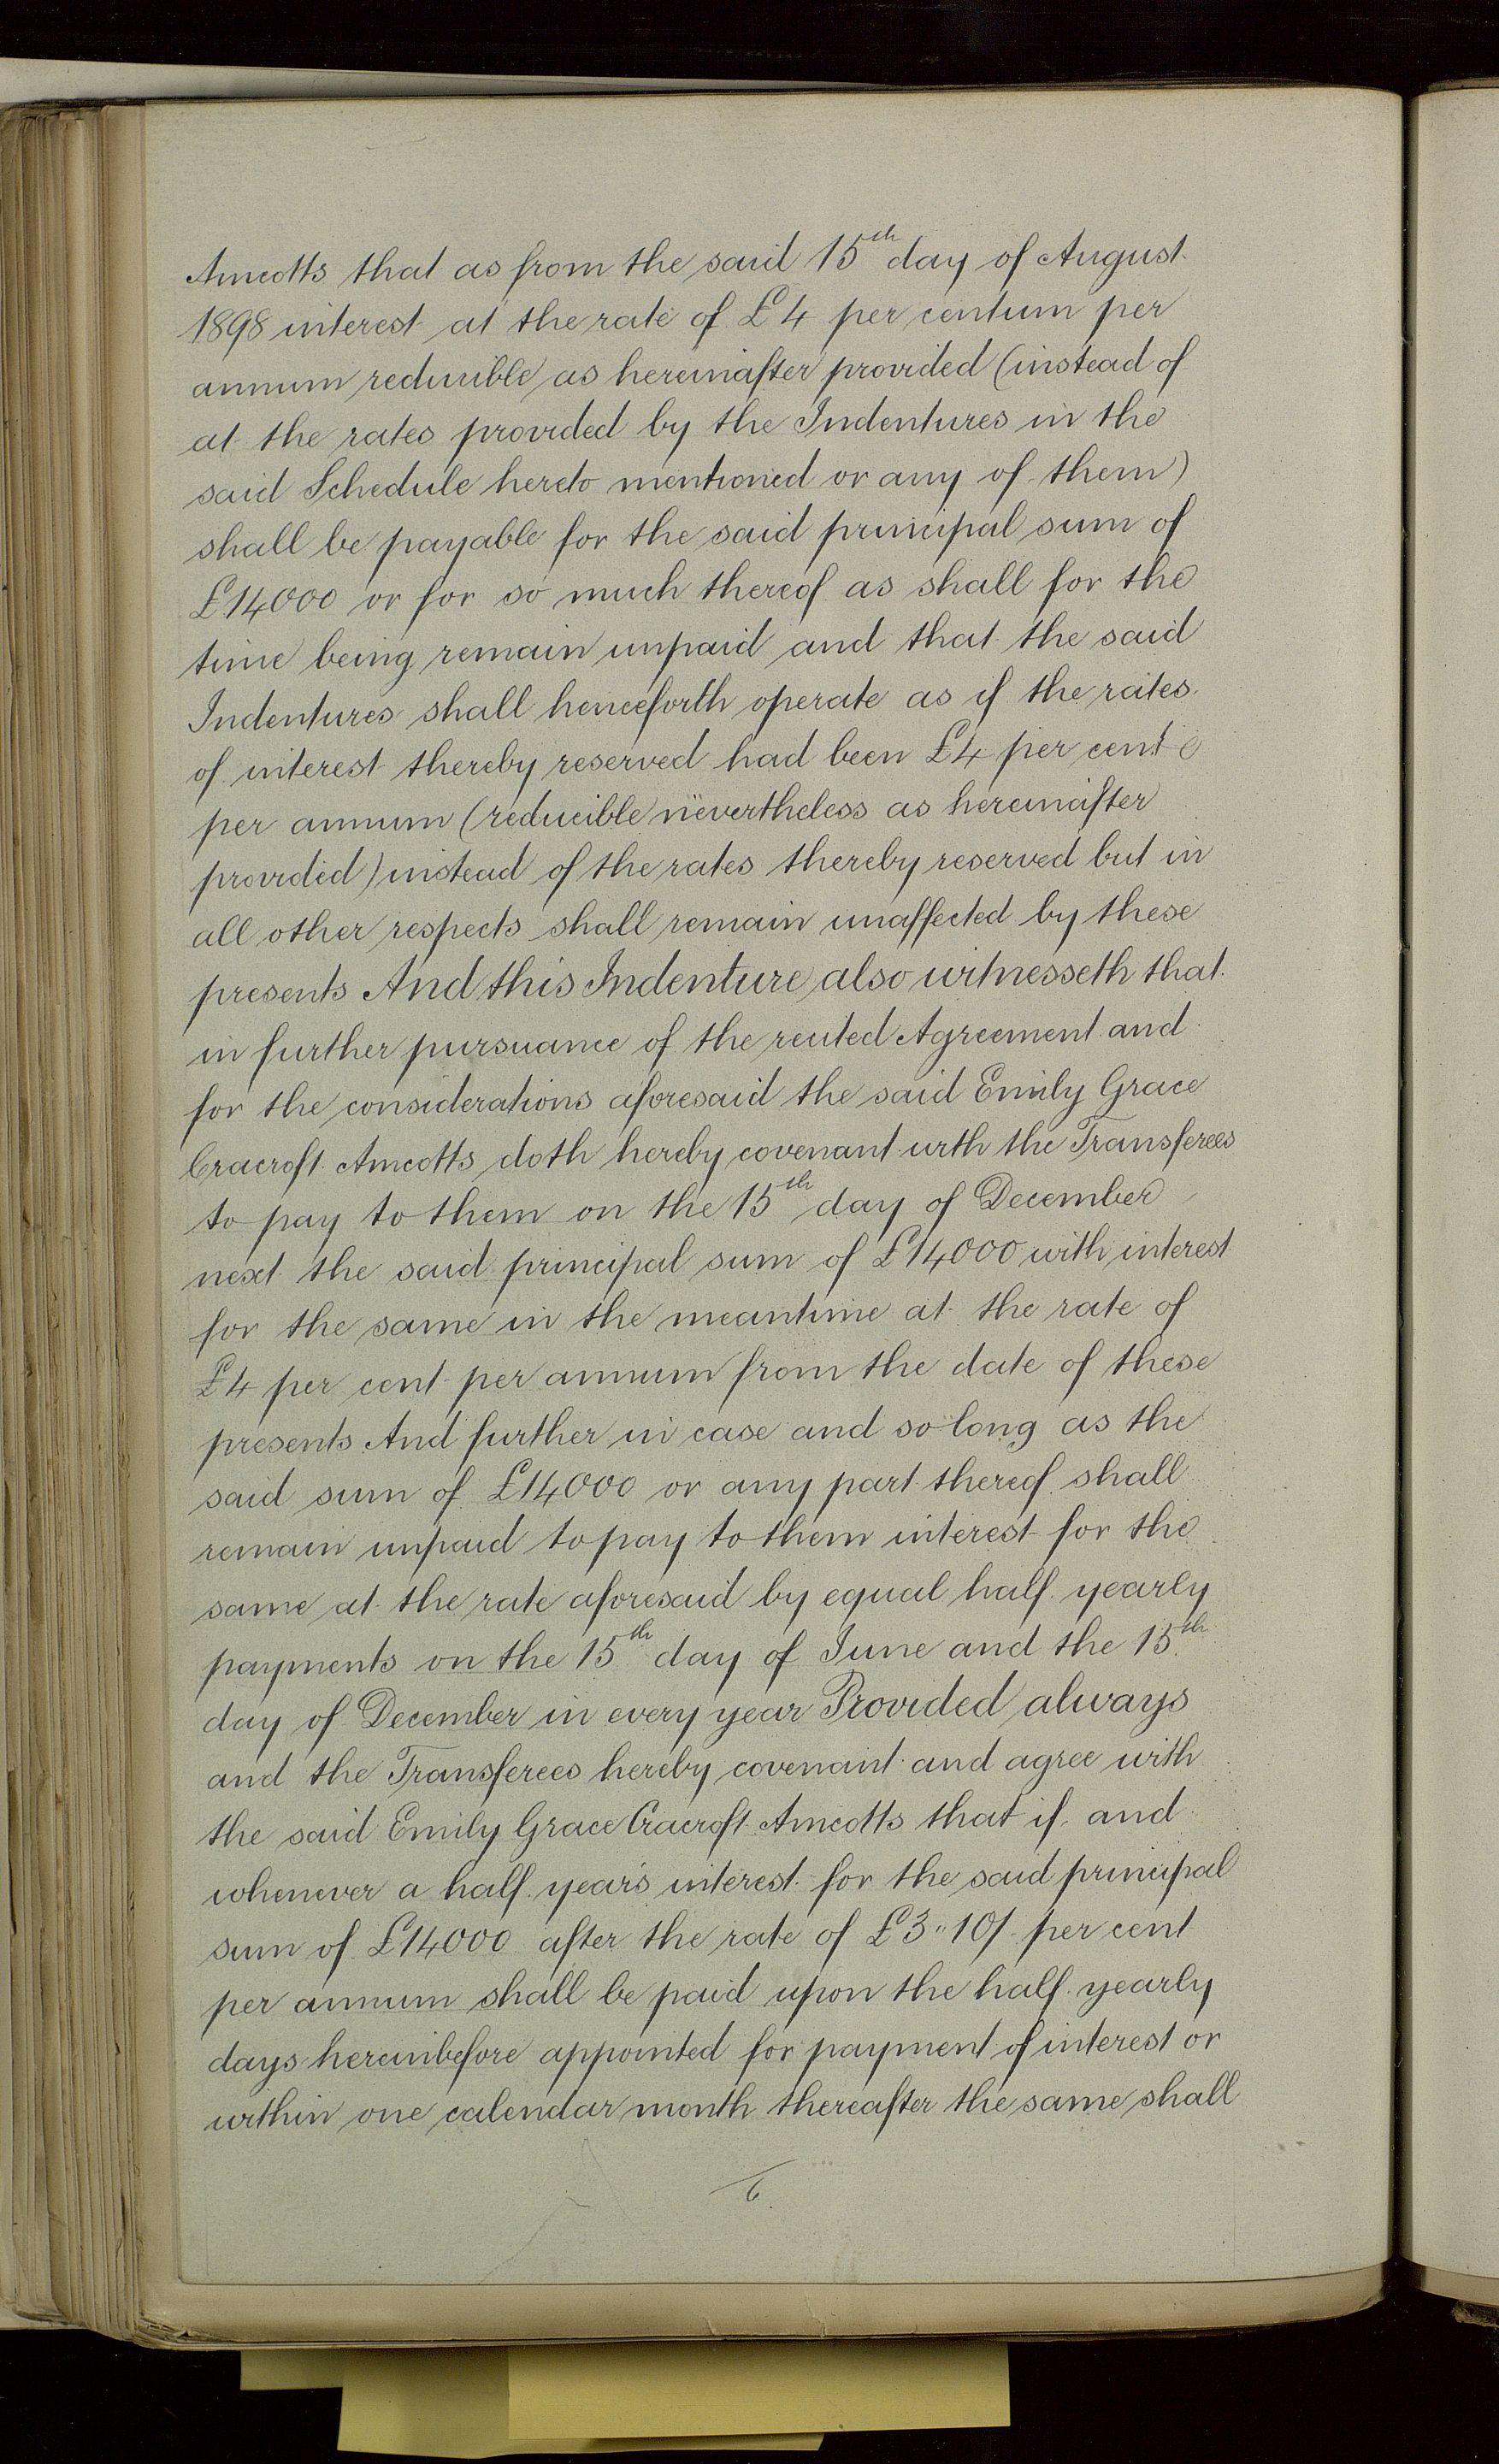 Amcotts that as from the said 15th day of August
1898 interest at the rate of £4 per centum per
annum reducible as hereinafter provided (instead of
at the rates provided by the Indentures in the
said Schedule hereto mentioned or any of them)
shall be payable for the said principal sum of
£14000 or for so much thereof as shall for the
time being remain unpaid and that the said
Indentures shall henceforth operate as if the rates
of interest thereby reserved had been £4 per cent
per annum (reducible nevertheless as hereinafter
provided) instead of the rates thereby reserved but in
all other respects shall remain unaffected by these
presents And this Indenture also witnesseth that
in further pursuance of the recited Agreement and
for the considerations aforesaid the said Emily Grace
Cracroft Amcotts doth hereby covenant with the Transferees
to pay to them on the 15th day of December
next the said principal sum of £14000 with interest
for the same in the meantime at the rate of
£4 per cent per annum from the date of these
presents And further in case and so long as the
said sum of £14000 or any part thereof shall
remain unpaid to pay to them interest for the
same at the rate aforesaid by equal half yearly
payments on the 15th day of June and the 15th
day of December in every year Provided always
and the Transferees hereby covenant and agree with
the said Emily Grace Cracroft Amcotts that if and
whenever a half year's interest for the said principal
sum of £14000 after the rate of £3"10/- per cent
per annum shall be paid upon the half yearly
days hereinbefore appointed for payment of interest or
within one calendar month thereafter the same shall
6